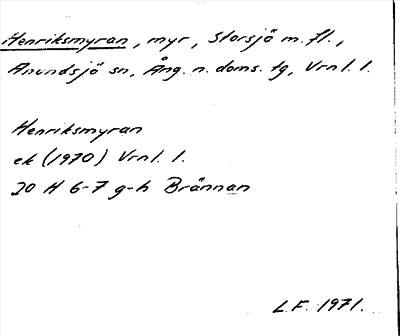 Henriksmyran, myr, Storsjö m.fl.,
Anundsjö sn, Ång. n. doms. tg, Vrnl. l.
Henriksmyran
ek (1970) Vrnl. l.
20 H 6-7 g-h Brännan
L.F. 1971.